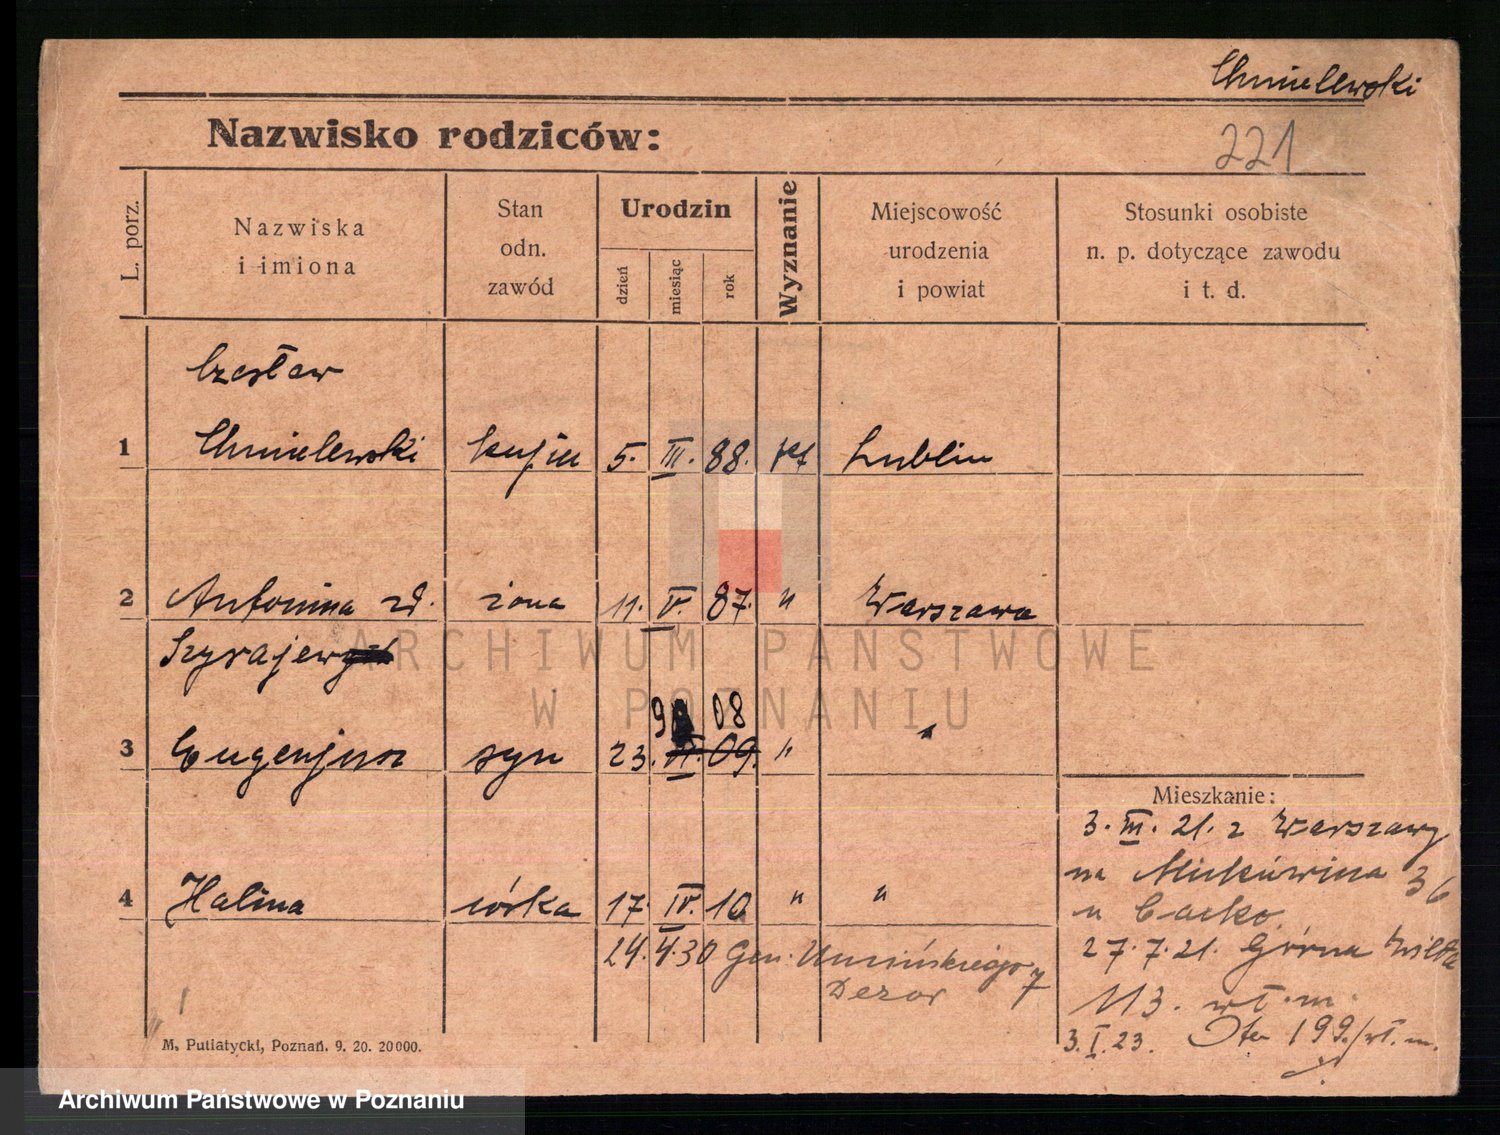 Chmielewski
Nazwisko rodziców:
221
L. porz.
Nazwiska
i imiona
Stan
odn.
zawód
Urodzin
dzień
miesiąc
rok
Wyznanie
Miejscowość
urodzenia
i powiat
Stosunki osobiste
n. p. dotyczące zawodu
i t. d.
Czesław
1 Chmielewski kupiec 5. III. 88. kat Lublin
2 Antonina zd. żona 11. V. 87. " Warszawa
ARCHIWUM PAŃSTWOWE
W POZNANIU
9 08
3 Eugenjusz syn 23. VI. 09. " "
Mieszkanie:
3. III. 21. z Warszawy
na Mickiewicza 36
4 Halina córka 17. IV. 10 " "
u
27. 7. 21. Górna Wilda
24. 4. 30 Gen. Umińskiego 7
Dezor
113. wł. m.
3. I. 23. 199/ wł. m.
M. Putiatycki, Poznań. 9. 20. 20000.
Archiwum Państwowe w Poznaniu